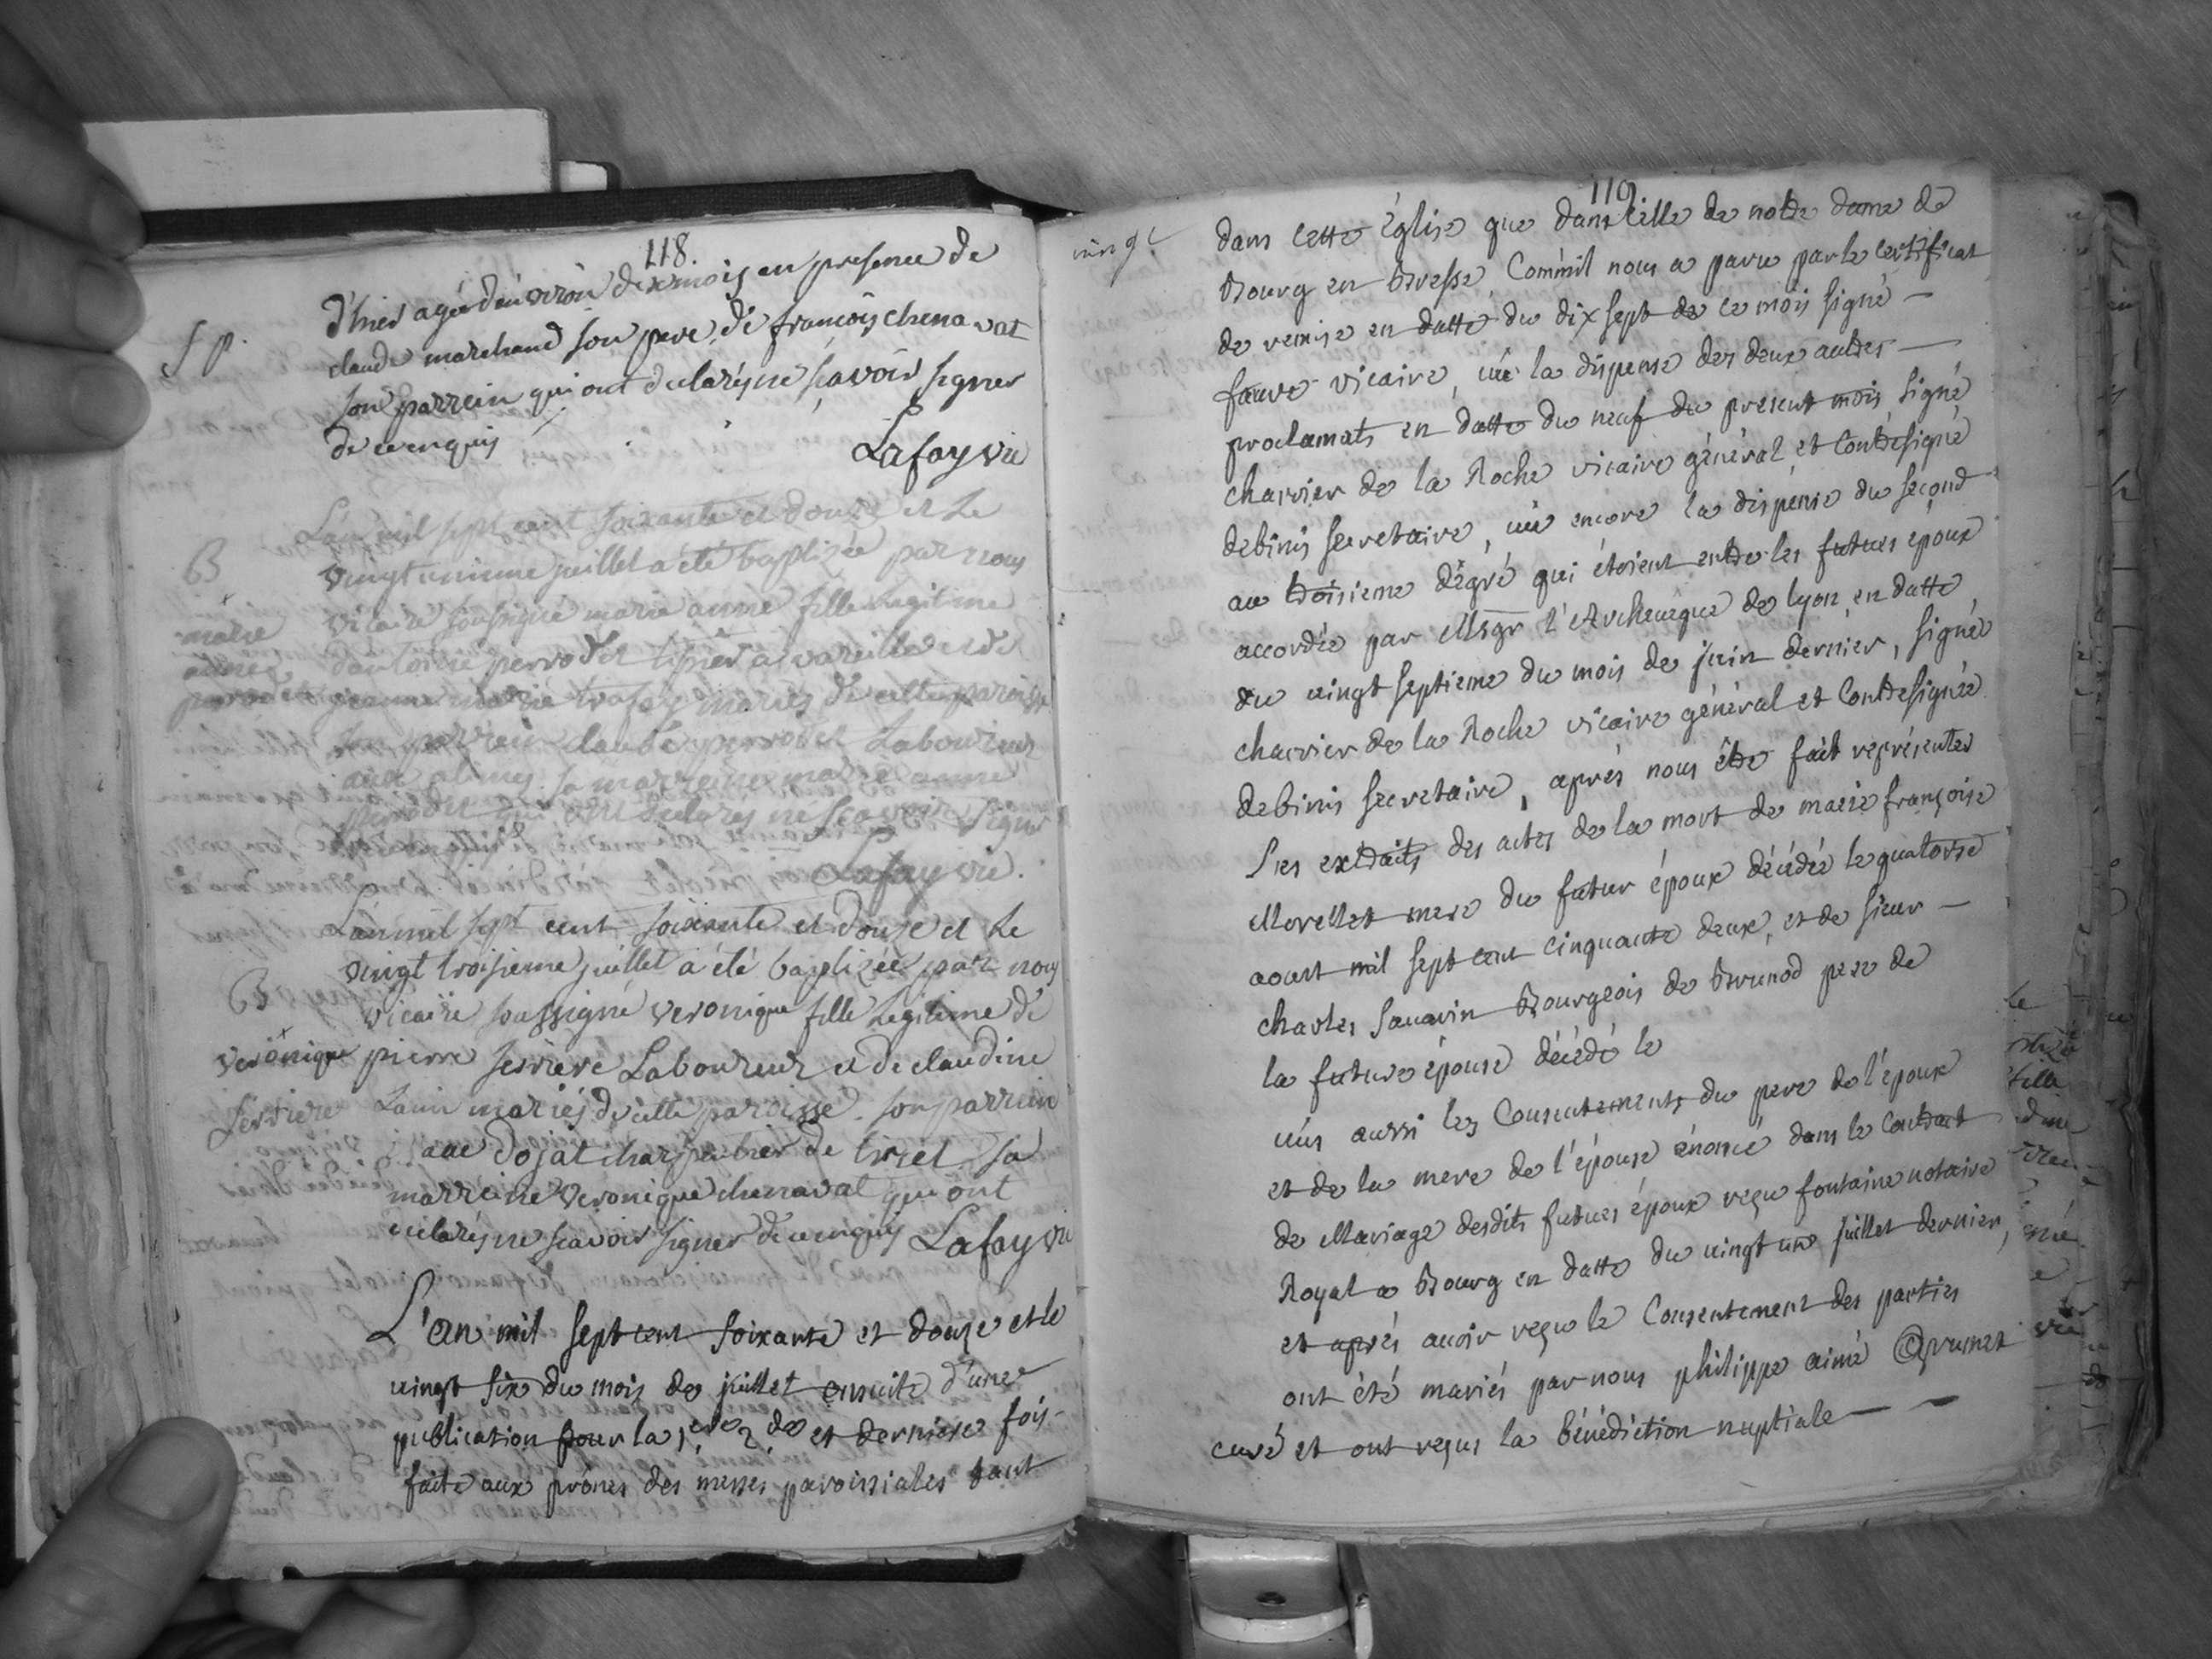 118.
d'hier agée d'environ dix mois en presence de
S P.
claude marchand son pere, de françois chenavat
son parrein qui ont declarés ne sçavoir signer
de ce enquis
Lafay vic
L'an mil sept cent soixante et douze et le
B
vingt unieme juillet a été baptizée par nous
marie
vicaire soussigné marie anne fille legitime
anne
d'antoine perrodet
perrodet
jeanne marie trafay mariés de cette paroisse
son parrein claude perrodet Laboureur
sa marreine marie anne
perrodet qui ont declarés ne sçavoir signer
Lafay vic.
L'an mil sept cent soixante et douze et le
vingt troisieme juillet a été baptizée par nous
B
vicaire soussigné veronique fille legitime de
veronique
pierre serriere Laboureur et de claudine
serriere
mariés de cette paroisse. son parrein
dojat charpentier de sa
marreine veronique chenavat qui ont
declarés ne sçavoir signer de ce enquis Lafay vic
L'an mil sept cent soixante et douze et le
vingt six du mois de juillet ensuite d'une
publication pour la 1ere 2de et derniere fois
faite aux prônes des messes paroissiales tant
119
dans cette église que dans celle de notre dame de
Bourg en Bresse, Comm'il nous a paru par le certificat
de remise en datte du dix sept de ce mois signé —
favre vicaire, vüe la dispense des deux autres —
proclamats en datte du neuf du present mois signé
charrier de la Roche vicaire général et Contresigné
debinis secretaire, vüe encore la dispense du second
au troisieme dégré qui étoient entre les futurs époux
accordée par Msgr l'Archeveque de lyon en datte
du vingt septieme du mois de juin dernier, signée
charrier de la Roche vicaire général et Contresignée
debinis secretaire, aprés nous être fait représenter
les extraits des actes de la mort de marie françoise
Morellet mere du futur époux décédée le quatorze
aoust mil sept cent cinquante deux, et de sieur —
charles Savarin Bourgeois de Brunod pere de
la future épouse décédé le
vüs aussi les Consentements du pere de l'époux
et de la mere de l'épouse énoncé dans le Contract
de Mariage desdits futurs époux reçu fontaine notaire
Royal a Bourg en datte du vingt un juillet dernier,
et aprés avoir reçu le Consentement des parties
ont été mariés par nous philippe aimé Brunet
curé et ont reçus la bénédiction nuptiale — —